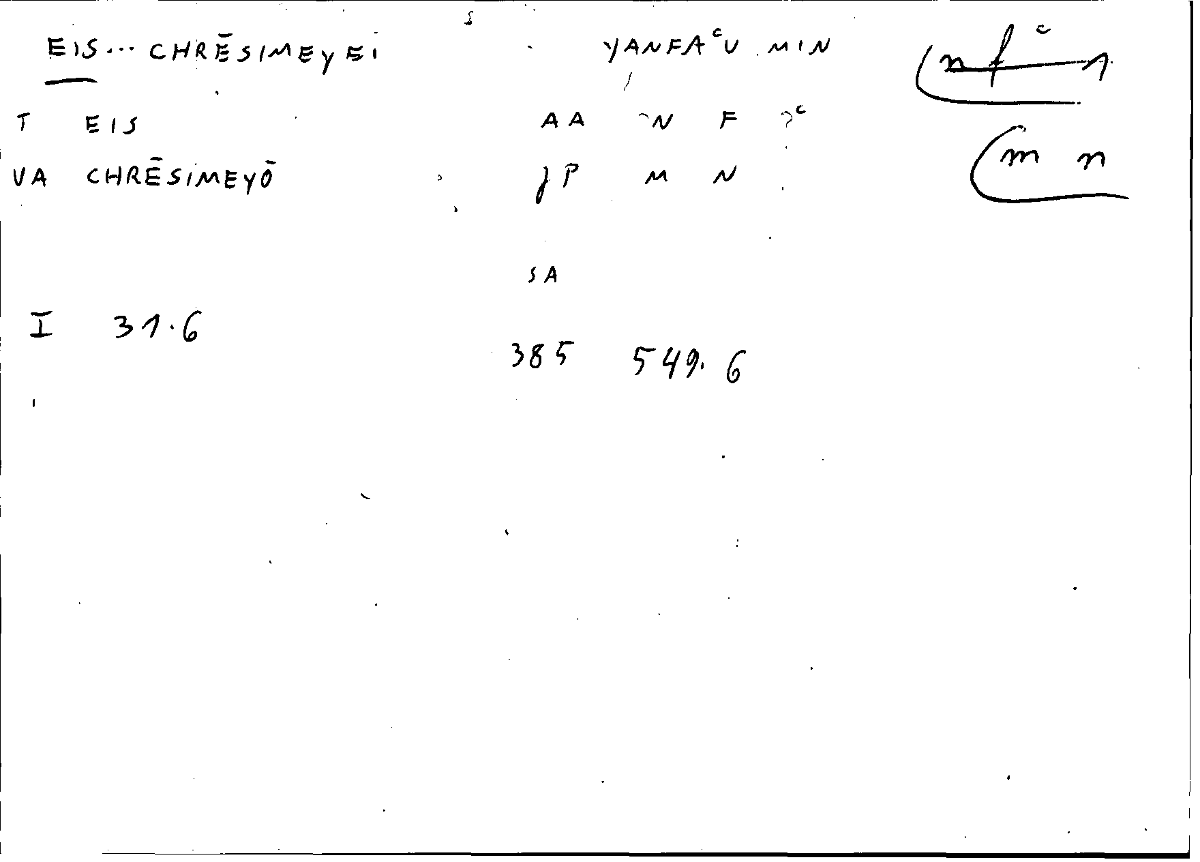 EIS... CHRĒSIMEYEI YANFAᶜU MIN n f ᶜ
T EIS AA N F ᶜ
VA CHRĒSIMEYŌ P M N m n
SA
I 31.6
385 549.6